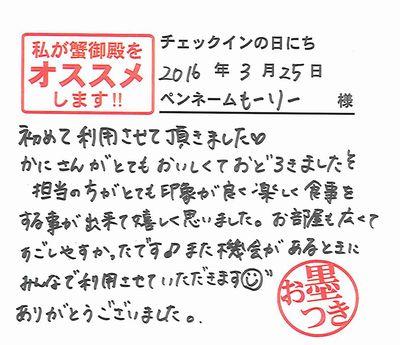 私が蟹御殿を
オススメ
します!!
チェックインの日にち
2016 年 3 月 25 日
ペンネーム もーりー 様
初めて利用させて頂きました♡
かにさんがとてもおいしくておどろきました
担当の方がとても印象が良く楽しく食事を
する事が出来て嬉しく思いました。お部屋も広くて
すごしやすかったです♪また機会があるときに
みんなで利用させていただきます☺
ありがとうございました。
お墨つき